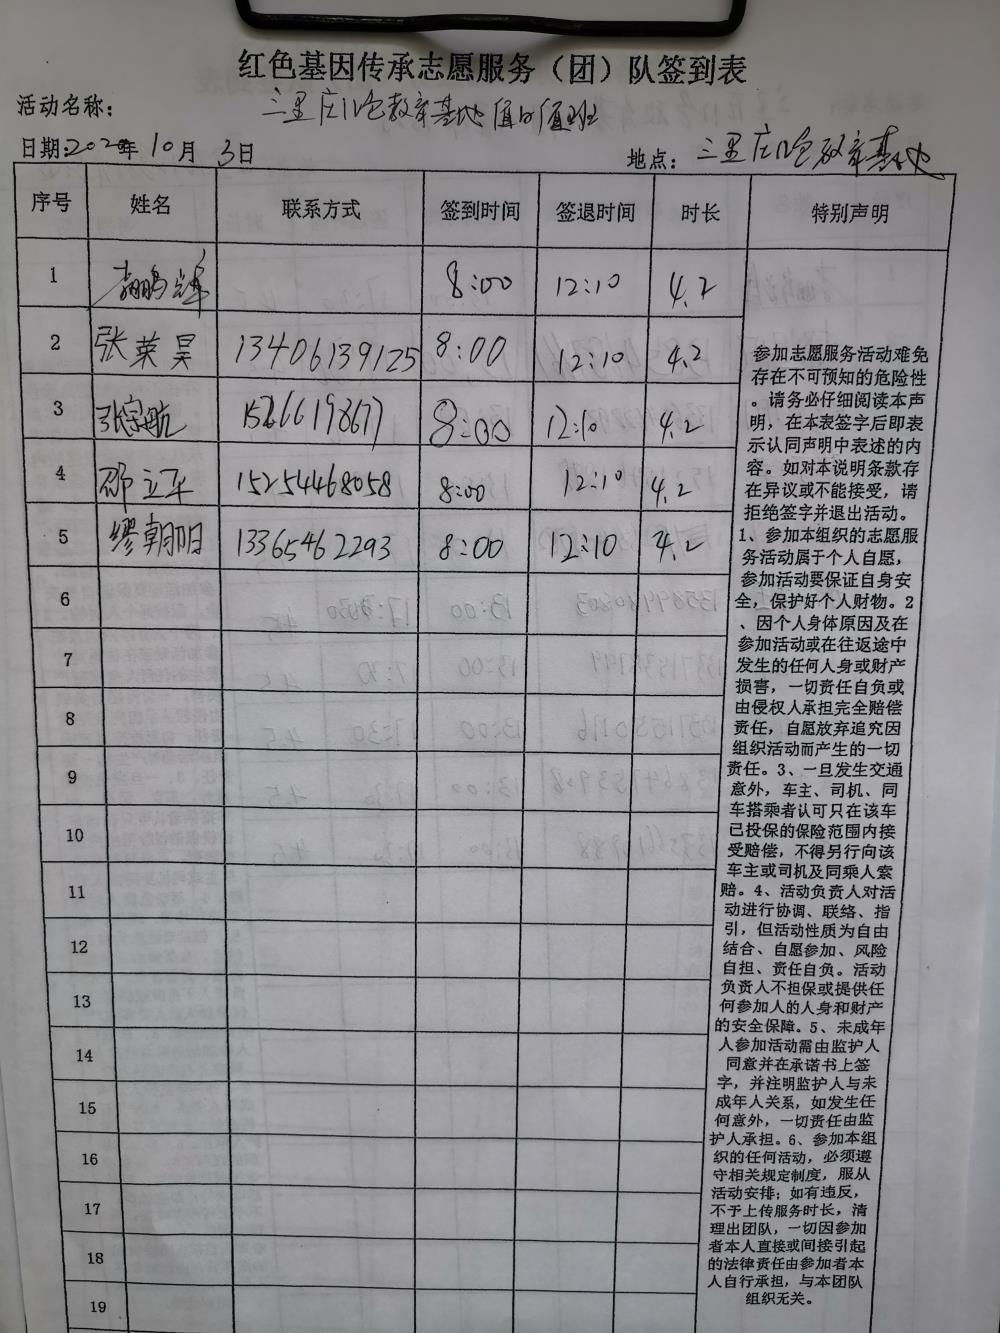 红色基因传承志愿服务（团）队签到表
活动名称： 三里庄门哈教育基地值日值班
日期:202 年10月3日 地点： 三里庄 教育基地
序号 姓名 联系方式 签到时间 签退时间 时长 特别声明
1 8:00 12:10 4.2
2 张莱昊 13406139125 8:00 12:10 4.2
3 张宗航 15266198677 8:00 12:10 4.2
4 邵立平 15254468058 8:00 12:10 4.2
5 缪朝阳 13365462293 8:00 12:10 4.2
6
7
8
9
10
11
12
13
14
15
16
17
18
19
参加志愿服务活动难免
存在不可预知的危险性
。请务必仔细阅读本声
明，在本表签字后即表
示认同声明中表述的内
容。如对本说明条款存
在异议或不能接受，请
拒绝签字并退出活动。
1、参加本组织的志愿服
务活动属于个人自愿，
参加活动要保证自身安
全，保护好个人财物。2
、因个人身体原因及在
参加活动或在往返途中
发生的任何人身或财产
损害，一切责任自负或
由侵权人承担完全赔偿
责任，自愿放弃追究因
组织活动而产生的一切
责任。3、一旦发生交通
意外，车主、司机、同
车搭乘者认可只在该车
已投保的保险范围内接
受赔偿，不得另行向该
车主或司机及同乘人索
赔。4、活动负责人对活
动进行协调、联络、指
引，但活动性质为自由
结合、自愿参加、风险
自担、责任自负。活动
负责人不担保或提供任
何参加人的人身和财产
的安全保障。5、未成年
人参加活动需由监护人
同意并在承诺书上签
字，并注明监护人与未
成年人关系，如发生任
何意外，一切责任由监
护人承担。6、参加本组
织的任何活动，必须遵
守相关规定制度，服从
活动安排；如有违反，
不予上传服务时长，清
理出团队，一切因参加
者本人直接或间接引起
的法律责任由参加者本
人自行承担，与本团队
组织无关。